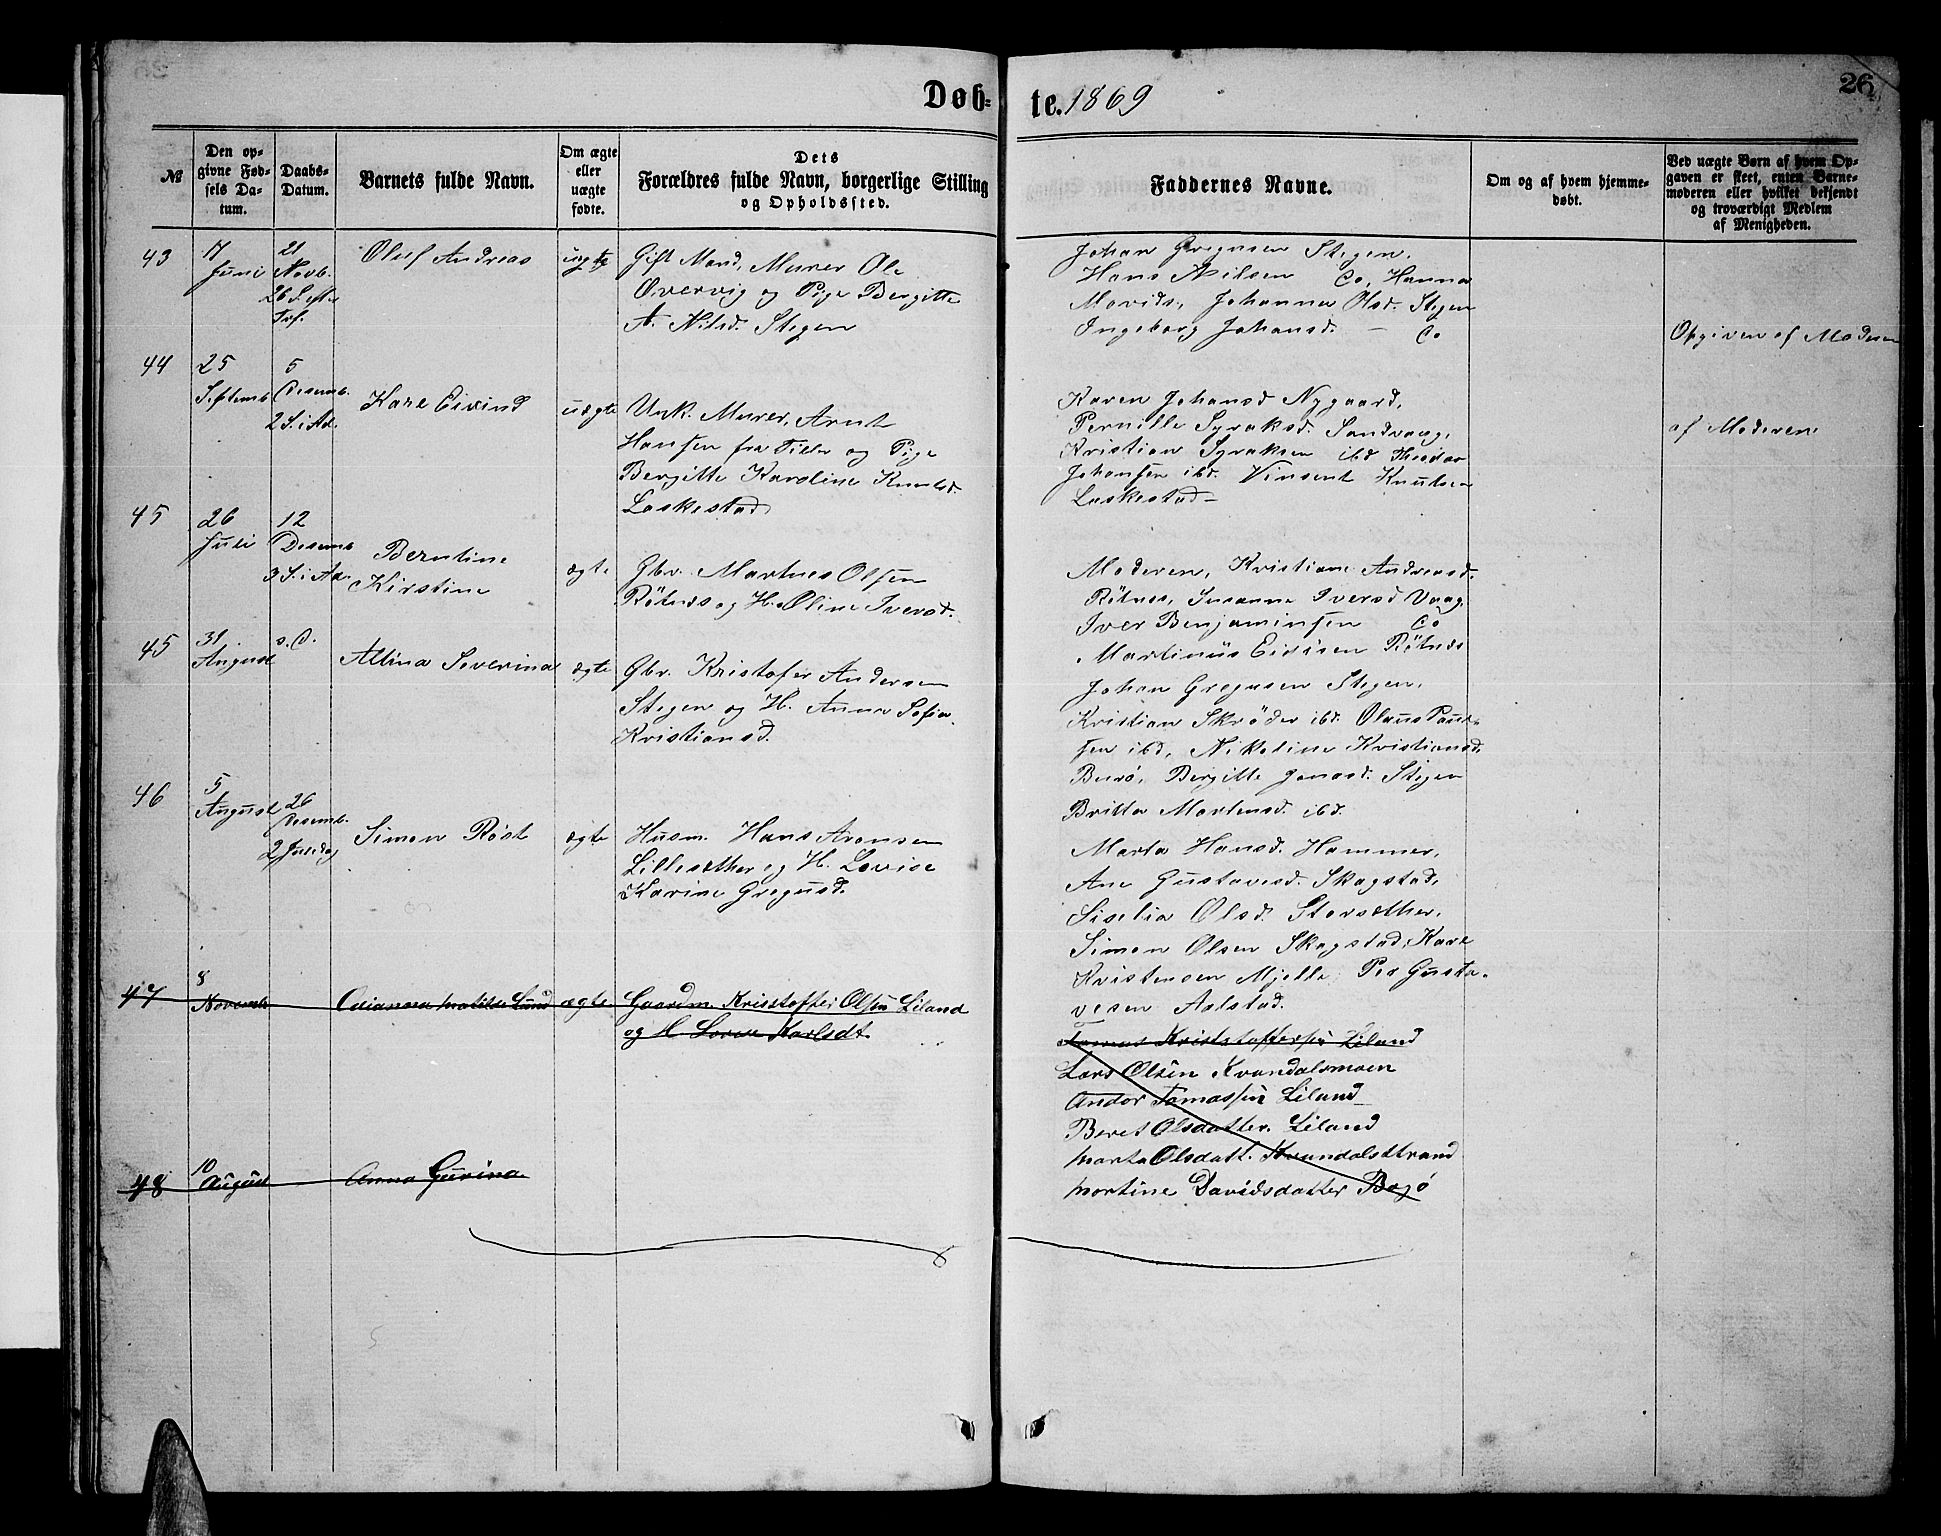 Døb-
te. 1869
26
№
Den op-
givne Fød-
sels Da-
tum.
Daabs-
Datum.
Barnets fulde Navn.
Om ægte
eller
uægte
fødte.
Dets
Forældres fulde Navn, borgerlige Stilling
og Opholdssted.
Faddernes Navne.
Om og af hvem hjemme-
døbt.
Ved uægte Børn af hvem Op-
gaven er skeet, enten Barne-
moderen eller hvilket bekjendt
og troværdigt Medlem
af Menigheden.
43
17
Juni
21
Novb.
26 S. efter
Tref.
Oluf Andreas
uægte
Gift Mand, Murer Ole
Overvig og Pige Bergitte
A. Nilsd. Stegen
Johan Gregusen Stegen,
Hans Nilsen Co, Hanna
Movids, Johanna Olsd. Stegen
Ingeborg Johansd. - Co
Opgiven af Moderen
44
25
Septemb
5
Desemb.
2 S. i Ad.
Karl Eivind
uægte
Unk. Murer, Arnt
Hansen fra Tiller og Pige
Bergitte Karoline Knutsd.
Laskestad
Karen Johansd Nygaard,
Pernille Syraksd. Sandvaag,
Kristian Syraksen ibd Theodor
Johansen ibd. Vinsent Knutsen
Laskestad
af Moderen
45
26
Juli
12
Desemb
3 S. i Ad.
Berntine
Kirstine
ægte
Gbr. Martnes Olsen
Røtnes og H. Oline Iversd.
Moderen, Kristiane Andreasd.
Røtnes, Susanne Iversd Vaag,
Iver Benjaminsen Co
Martinus Eirisen Røtnes
45
31
August
s. D.
Altina Severina
ægte
Gbr. Kristofer Andersen
Stegen og H. Anna Sofia
Kristiansd.
Johan Gregusen Stegen,
Kristian Skrøder ibd. Olaus Paul-
sen ibd, Nikoline Kristiansd.
Burø, Bergitte Jonasd. Stegen
Britta Mortensd. ibd.
46
5
August
26
Desemb.
2 Juledag
Simon Røst
ægte
Husm. Hans Aronsen
Lillesæther og H. Lovise
Karine Gregusd.
Marta Hansd. Hammer,
Ane Gustavesd. Skagstad,
Siselia Olsd. Storsæther,
Simon Olsen Skagstad, Karl
Kristensen Mjelle, Per Gusta-
vesen Aalstad.
47
8
Novemb
Matilde Lund
ægte
Gaardm. Kristoffer Olsen Leland
og H Karlsdt.
Kristoffersen Leland
Lars Olsen Kvandalsmoen
Andor Tomassen Leland
Beret Olsdatter Leland
Marta Olsdatt. Kvandalsstrand
Martine Davidsdatter Bogø
48
10
August
Anna Gurina